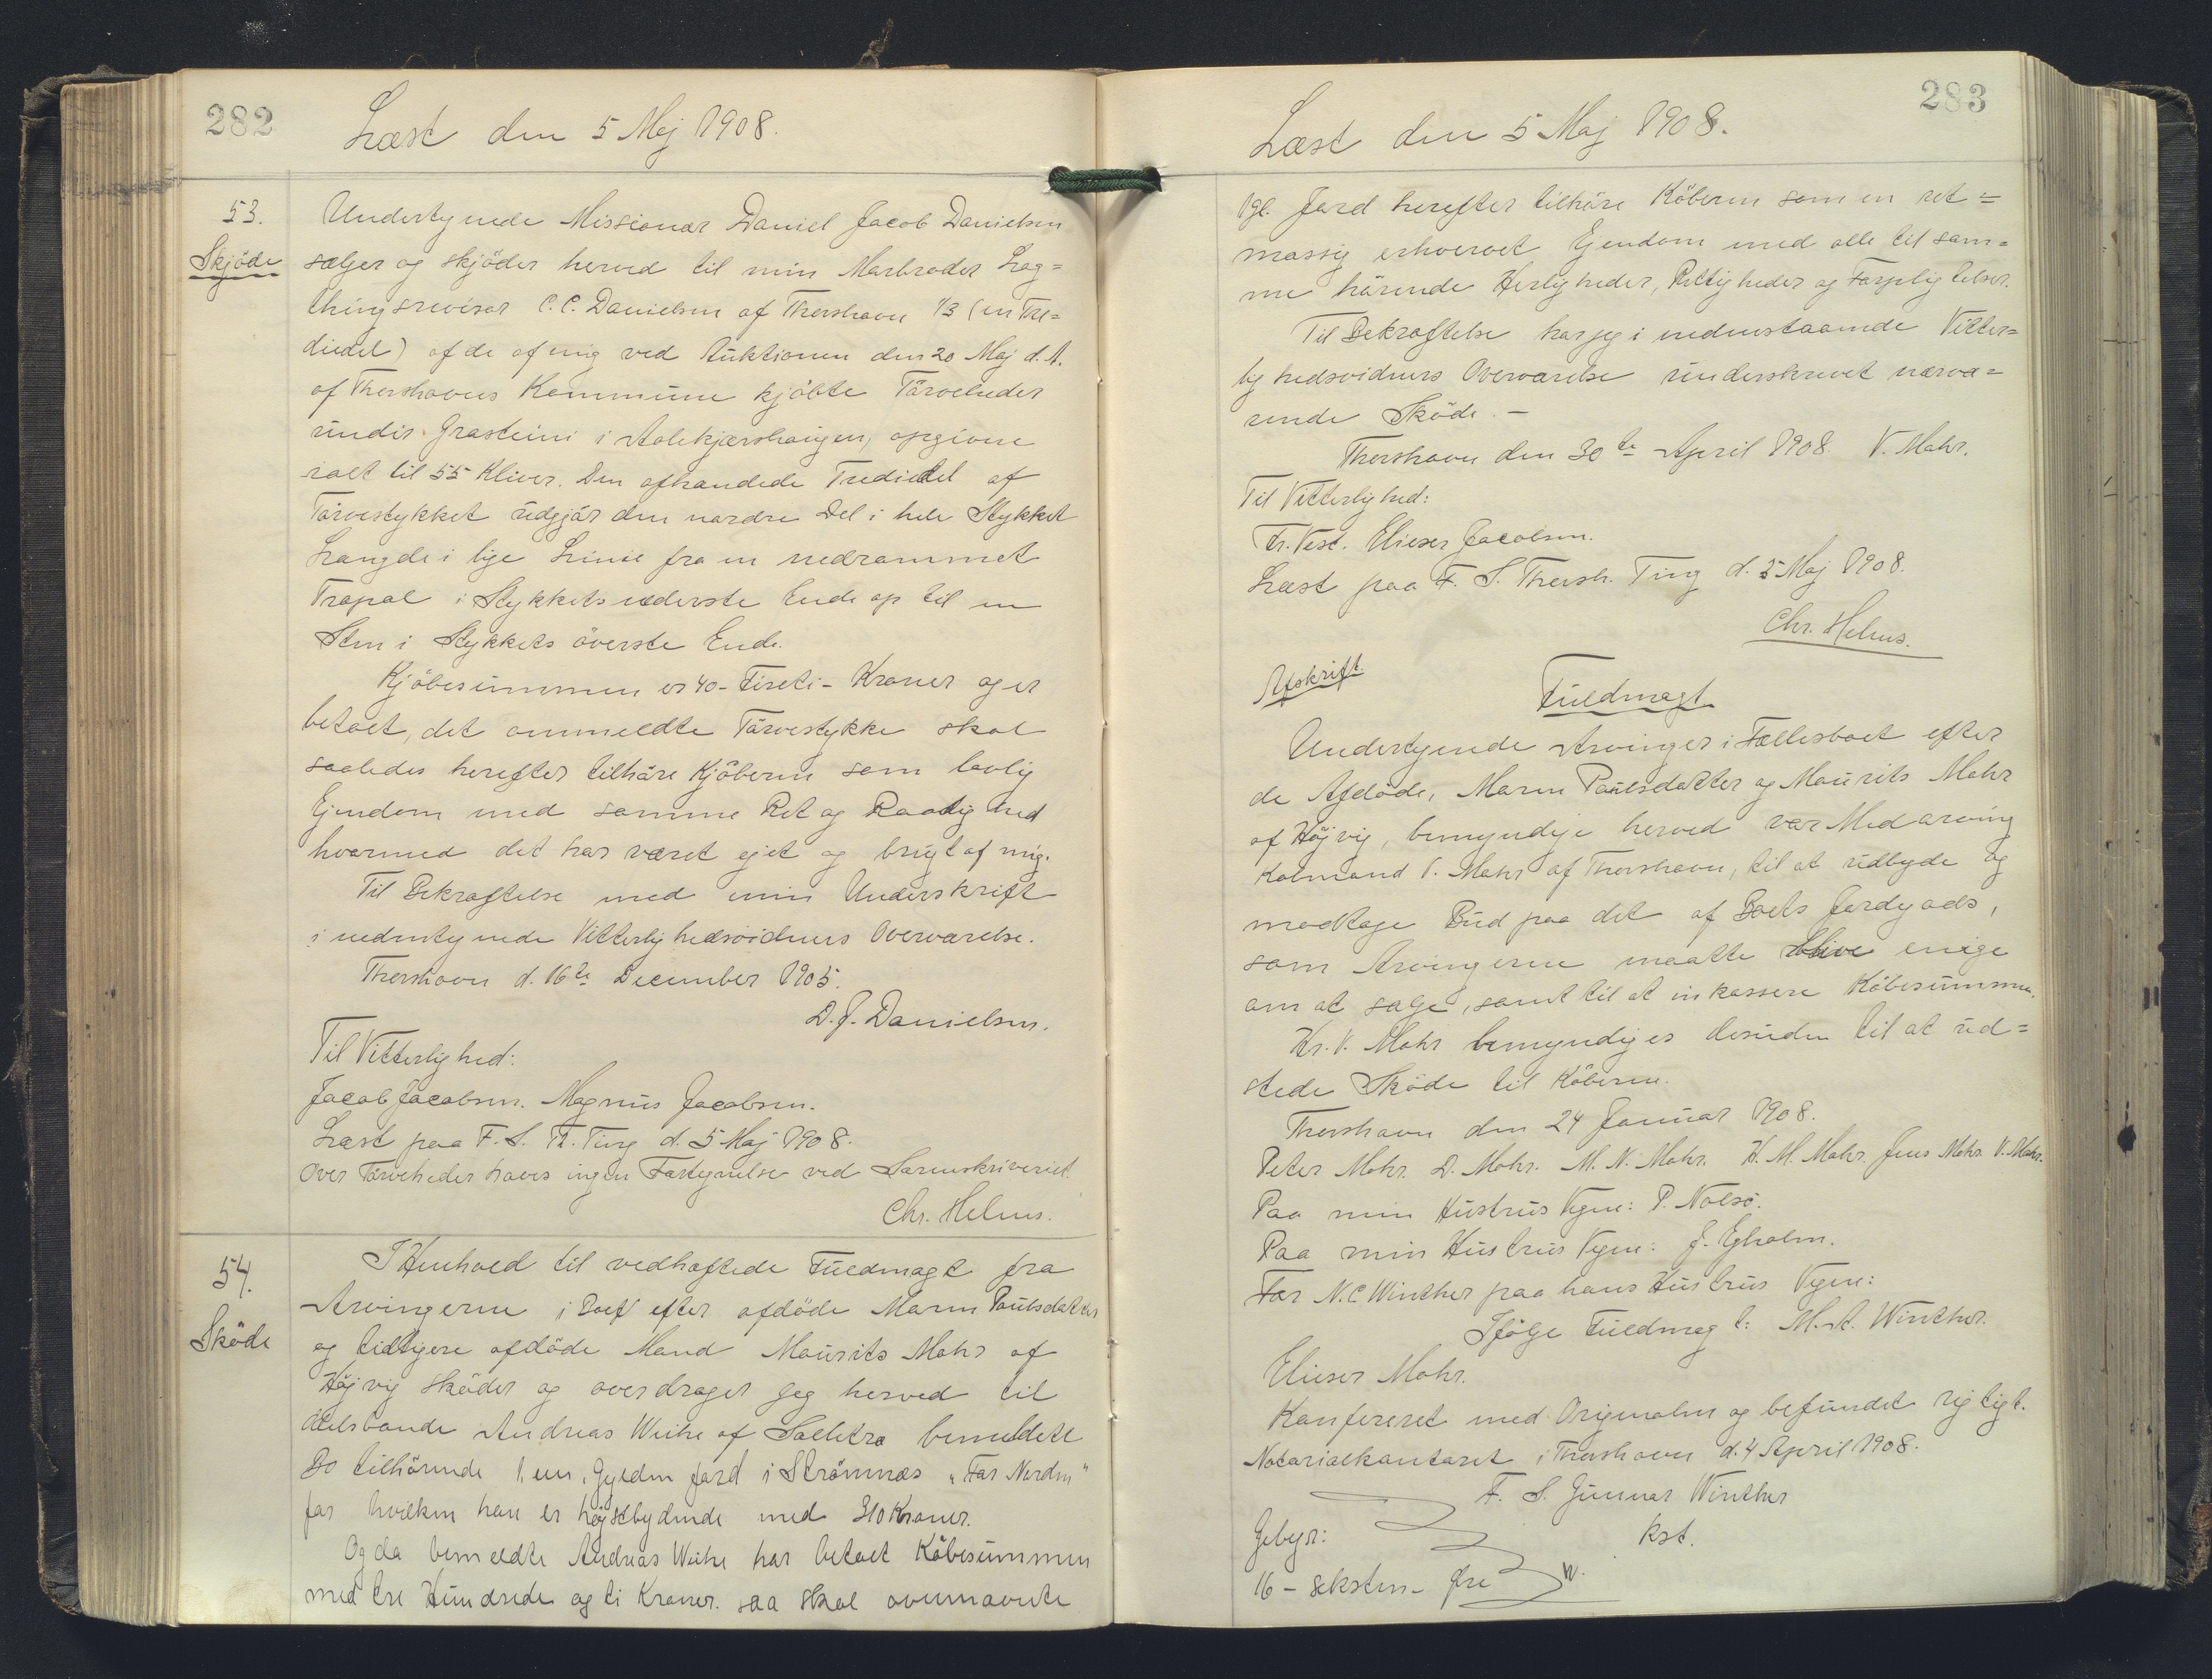 282
Læst den 5 Mej 1908.
53.
Skjöde
Undertegnede Missionær Daniel Jacob Danielsen
sælger og skjöder herved til min Morbroder Lag=
thingsrevisor C. C. Danielsen af Thorshavn 1/3 (en Tre=
diedel) af de af mig ved Auktionen den 20 Maj d. A.
af Thorshavns Kommune kjöbte Törveheder
undir Grasteini i Aalekjærshaugen, opgivne
ialt til 55 Kliver. Den afhændede Trediedel af
Törvestykket udgjör den nordre Del i hele Stykket
Længde i lige Linie fra en nedrammet
Træpæl i Stykkets nederste Ende op til en
Sten i Stykkets överste Ende.
Kjöbesummen er 40 - Fireti - Kroner og er
betalt, det ommeldte Törvestykke skal
saaledes herefter tilhöre Kjöberen som lovlig
Ejendom med samme Ret og Raadighed
hvormed det har været ejet og brugt af mig.
Til Bekræftelse med min Underskrift
i nedentegnede Vitterlighedsvidners Overværelse.
Thorshavn d. 16de December 1905.
D. J. Danielsen.
Til Vitterlighed:
Jacob Jacobsen. Magnus Jacobsen.
Læst paa F. S. Th. Ting d. 5 Maj 1908.
Over Törveheder haves ingen Fortegnelse ved Sorenskriveriet.
Chr. Helms.
54.
Sköde
I Henhold til vedhæftede Fuldmagt fra
Arvingerne i Boet efter afdöde Maren Poulsdatter
og tidligere afdöde Mand Mourits Mohr af
Höjvig sköder og overdrager jeg herved til
Odelsbonde Andreas Weihe af Saltetraa bemeldete
Bo tilhörende 1, een, Gylden Jord i Strömnæs "Fær Norden"
for hvilken han er höjstbydende med 310 Kroner.
Og da bemeldte Andreas Weihe har betalt Köbesummen
med tre Hundrede og ti Kroner. saa skal ovennævnte
283
Læst den 5 Maj 1908.
1 gl. Jord herefter tilhöre Köberen som en ret=
mæssig erhvervet Ejendom med alle til sam=
me hörende Herligheder, Rettigheder og Forpligtelser.
Til Bekræftelse har jeg i nedenstaaende Vitter=
lighedsvidners Overværelse underskrevet nærvæ=
rende Sköde. -
Thorshavn den 30te April 1908. V. Mohr.
Til Vitterlighed:
Fr. Vest. Elieser Jacobsen.
Læst paa F. S. Thorsh. Ting d. 5 Maj 1908.
Chr. Helms.
Afskrift.
Fuldmagt
Undertegnede Arvinger i Fællesboet efter
de Afdöde, Maren Poulsdatter og Mourits Mohr
af Höjvig, bemyndige herved vor Medarving
Købmand V. Mohr af Thorshavn, til at udbyde og
modtage Bud paa det af Boets Jordgods,
som Arvingerne maatte blive enige
om at sælge, samt til at inkassere Köbesummen.
Hr. V. Mohr bemyndiges desuden til at ud=
stede Sköde til Köberen.
Thorshavn den 24 Januar 1908.
Peter Mohr. D. Mohr. M. N. Mohr. H. M. Mohr. Jens Mohr. V. Mohr.
Paa min Hustrus Vegne: P. Nolsö.
Paa min Hustrus Vegne: J. Egholm.
For N. C Winther paa hans Hustrus Vegne:
Ifölge Fuldmagt: M. A. Winther.
Elieser Mohr.
Konfereret med Originalen og befundet rigtigt.
Notarialkontoret i Thorshavn d. 4 April 1908.
F. S. Gunnar Winther
kst.
Gebyr:
16 - seksten - Øre
W.